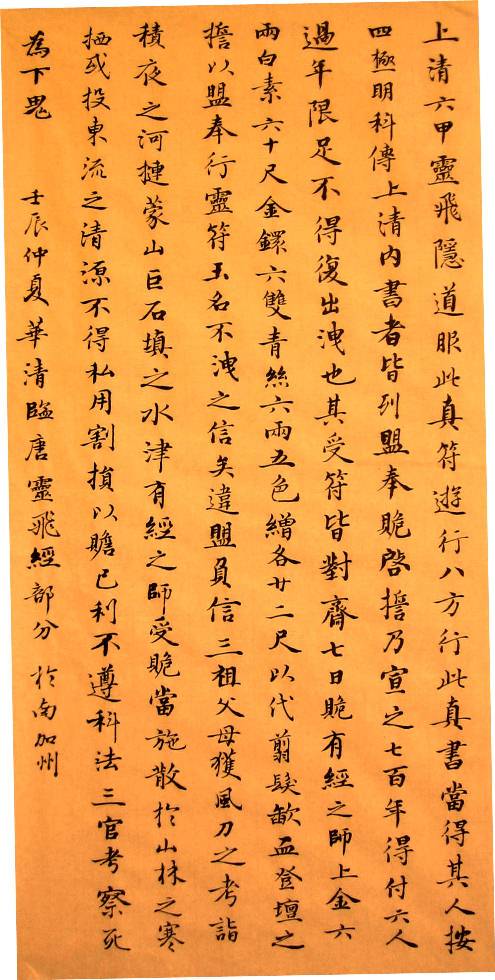 上清六甲靈飛隱道服此真符遊行八方行此真書當得其人按
四極明科傳上清內書者皆列盟奉跪啓誓乃宣之七百年得付六人
過年限足不得復出洩也其受符皆對齋七日跪有經之師上金六
兩白素六十尺金鐶六雙青絲六兩五色繒各廿二尺以代翦髮歃血登壇之
誓以盟奉行靈符玉名不洩之信矣違盟負信三祖父母獲風刀之考詣
積夜之河摙蒙山巨石填之水津有經之師受跪當施散於山林之寒
栖或投東流之清源不得私用割損以贍己利不遵科法三官考察死
為下鬼 壬辰仲夏華清臨唐靈飛經部分 於南加州